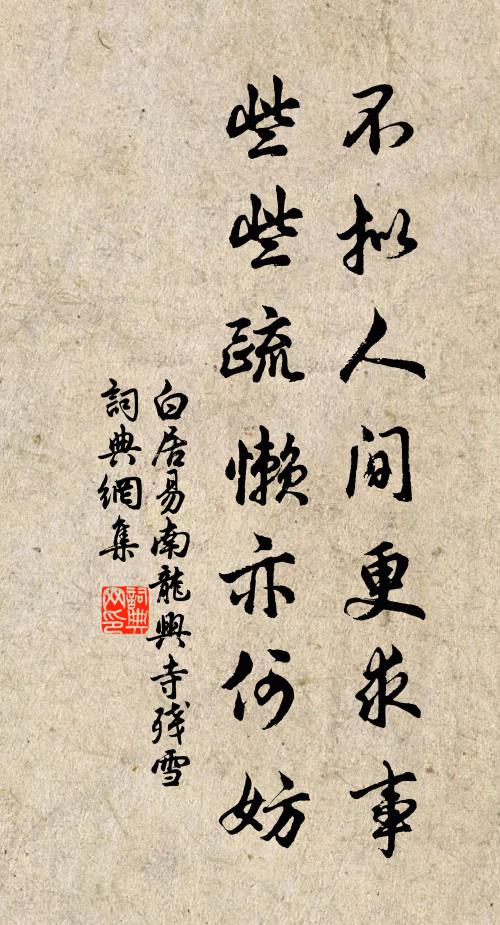 不拟人间更求事
些些疏懒亦何妨
白居易南龍興寺残雪
詞典網集
詞典
网印